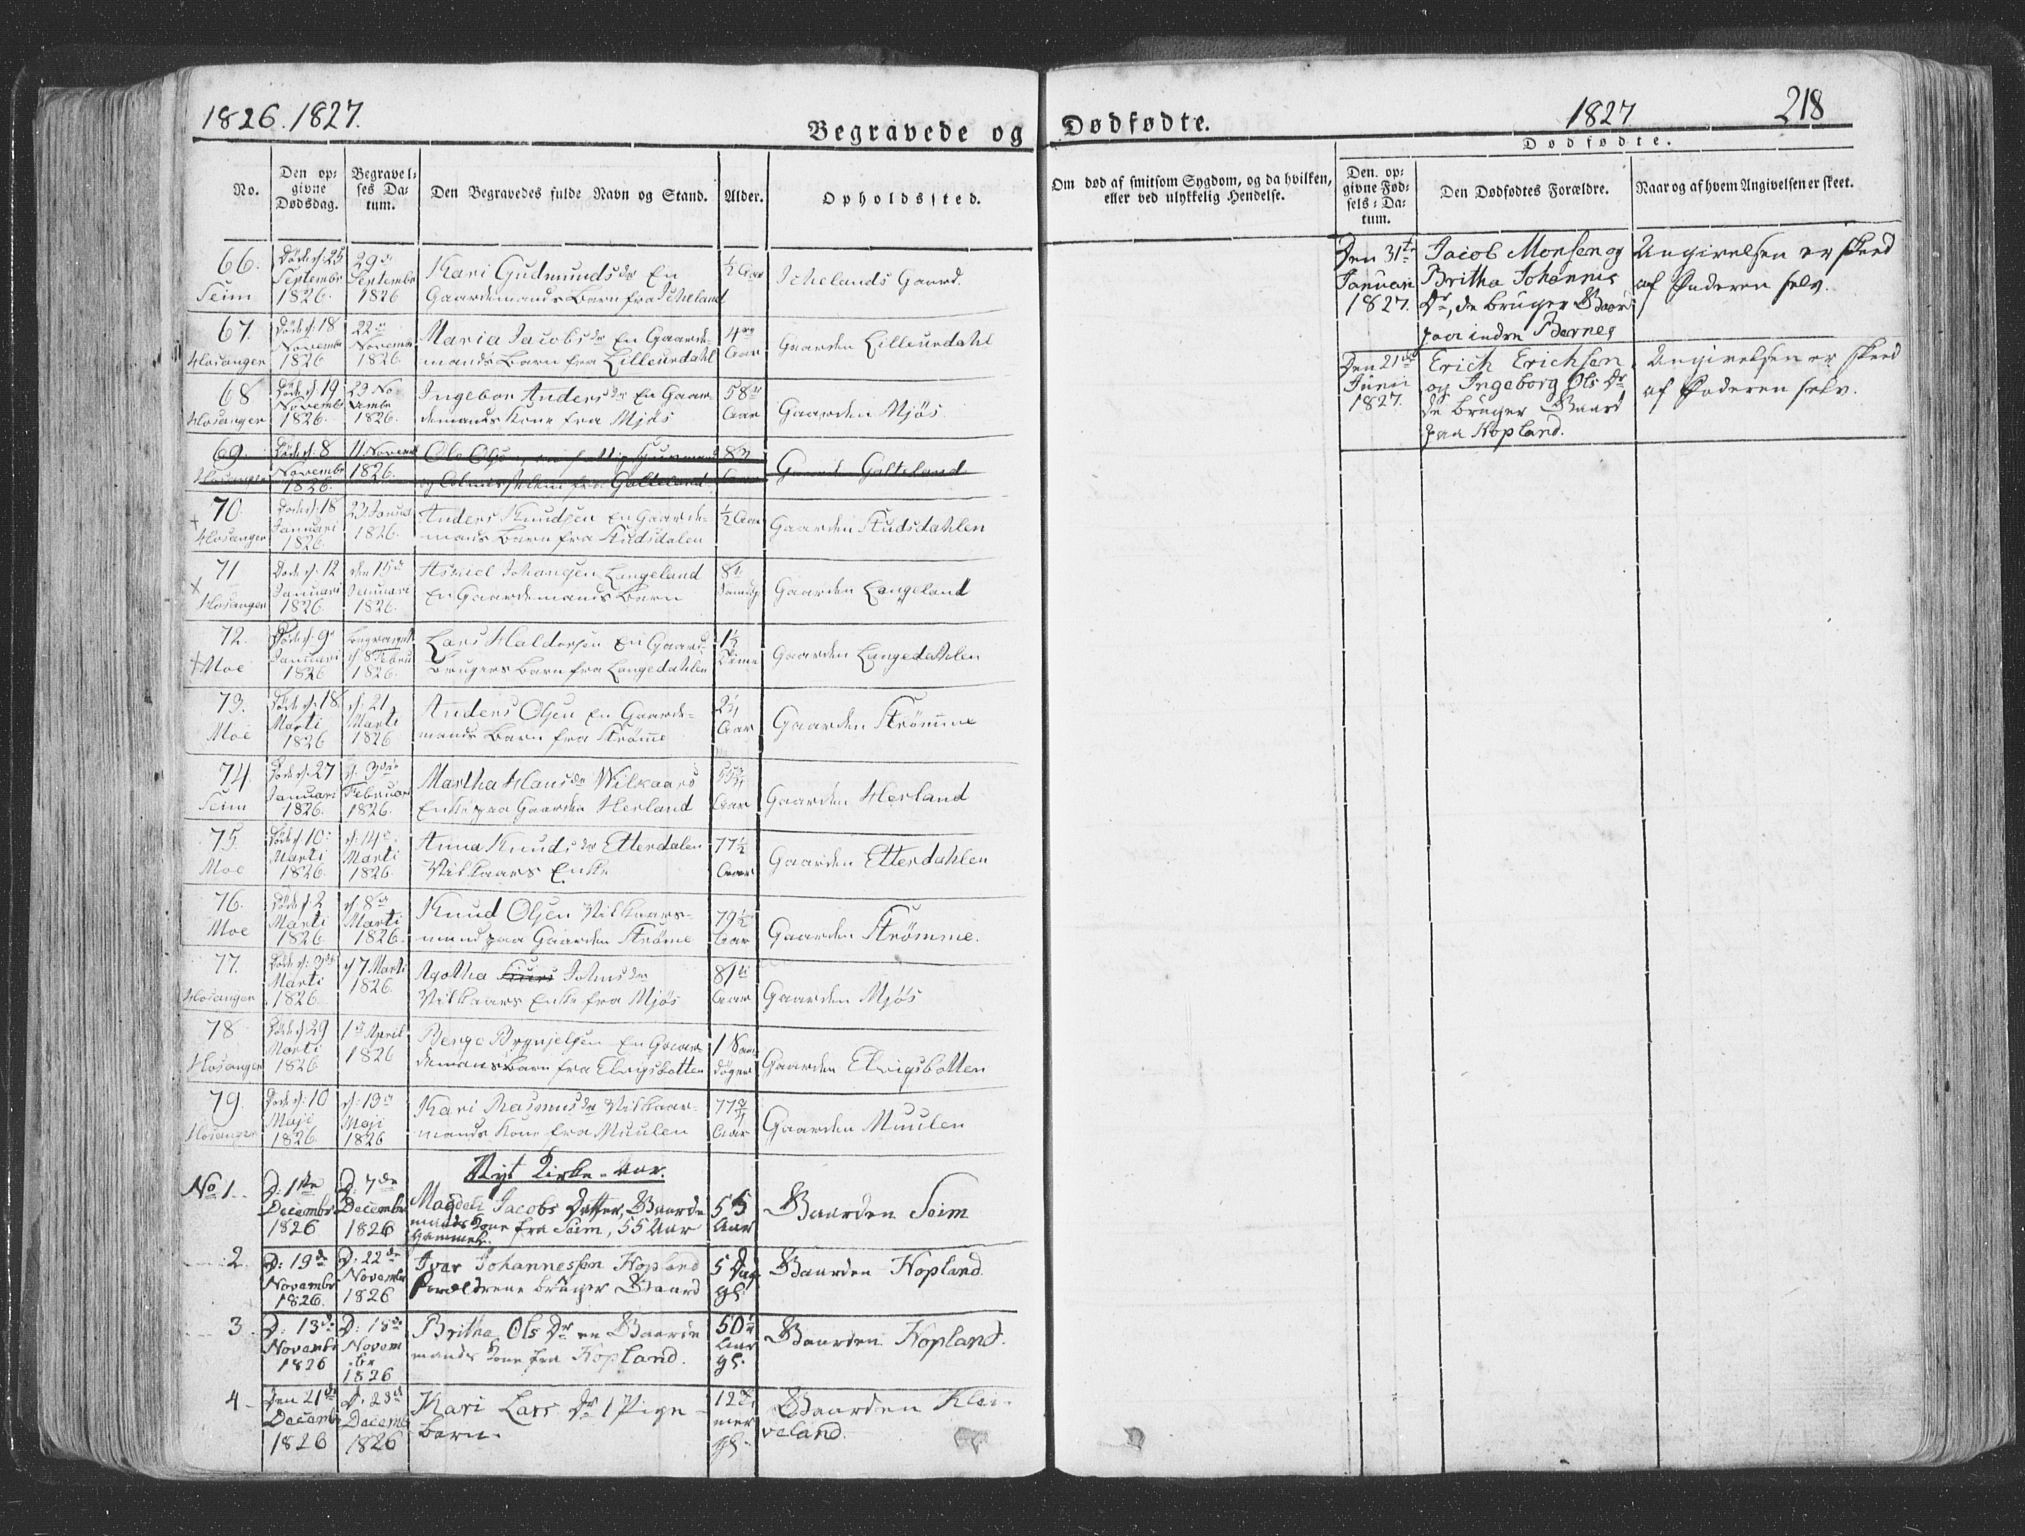 1826. 1827.
Begravede og
No.
Den opgivne Dødsdag.
Begravelses Datum.
Den Begravedes fulde Navn og Stand.
Alder.
Opholdssted.
66. Seim
Død d: 25 Septembr 1826.
29 Septembr 1826
Kari Gudmunds dr En
Gaardemands Barn fra
½ Aar
Gaard.
67. Hosanger
Død d: 18 Novembr 1826
22 Novembr 1826.
Maria Jacobs dr En Gaarde-
mands Barn fra Lilleurdahl
4 Aar
Gaarden Lilleurdahl
68 Hosanger
Død d: 19 Novembr 1826.
23 Novembr 1826.
Ingebor Anders dr En Gaar-
demands Kone fra Mjøs
58 Aar
Gaarden Mjøs.
69. Hosanger
Død d: 8 Novembr 1826
11 Novemb 1826.
Ole Olsen, en
fra Galteland.
Gaard Galteland
70. Hosanger
Død d: 18 Januari 1826.
23 Januar 1826.
Anders Knudsen En Gaarde-
mands Barn fra Studsdalen
½ Aar
Gaarden Studsdahlen
71 Hosanger
Død d: 12 Januari 1826.
den 15 Januari 1826.
Johansen Langeland
En Gaardemands Barn
8
Gaarden Langeland
72. Moe
Død d: 9 Januari 1826
begravet d 8 Febru 1826.
Lars Haldorsen En Gaard-
brugers Barn fra Langedahlen
1½ Time
Gaarden Langedahlen
73. Moe
Død d: 18 Marti 1826
d: 21 Marti 1826
Anders Olsen En Gaarde-
mands Barn fra Strømme
Aar
Gaarden Strømme
74 Seim
Død d: 27 Januari 1826.
d: 3 Februar 1826.
Martha Hans dr Vilkaars
Enke paa Gaarden Herland
Aar
Gaarden Herland
75. Moe
Død d 10 Marti 1826.
d: 14 Marti 1826.
Anna Knuds dr Etterdalen
Vilkaars Enke
77½ Aar
Gaarden Etterdahlen
76. Moe
Død d 2 Marti 1826
d 8 Marti 1826.
Knud Olsen Vilkaars-
mand paa Gaarden Strøme
79½ Aar
Gaarden Strømme.
77. Hosanger
Død d: 3 Marti 1826.
d 7 Marti 1826.
Agatha Johns dr
Vilkaars Enke fra Mjøs
81 Aar
Gaarden Mjøs
78 Hosanger
Død d 29 Marti 1826
1 April 1826
Brynjelsen En Gaar-
demans Barn fra Elvigsbotten
1
Gaarden Elvigsbotten
79. Hosanger
Død d: 10 Maji 1826.
d: 19 Maji 1826
Kari Rasmus dr Vilkaar-
mands Kone fra Muulen
77 Aar
Gaarden Muulen
Nyt Kirke-Aar.
No 1.
D: 1ste Decembr 1826
D. 7de Decembr 1826
Magdeli Jacobs Datter, Gaarde
mands Kone fra Seim, 55 Aar
Gammel.
55 Aar
Gaarden Seim
2.
D: 19de Novembr 1826.
D: 22de Novembr 1826
Ivar Johannessen Hopland
Forældrene bruger Gaard
5 Dag gl:
Gaarden Hopland.
3.
D: 13de Novembr 1826
D: 18de Novembr 1826
Britha Ols Dr en Gaard
mands Kone fra Hopland.
50 Aar gl:
Gaarden Hopland.
4
Den 21de Decembr 1826
D. 28d Decemb 1826
Kari Lars Dr 1 Pige-
barn.
12 gl.
Gaarden Klei-
veland.
Dødfødte.
1827
218
Om død af smitsom Sygdom, og da hvilken,
eller ved ulykkelig Hendelse.
Dødfødte.
Den opgivne Fødsels-Datum.
Den Dødfødtes Forældre.
Naar og af hvem Angivelsen er skeet.
Den 31te Januari 1827.
Jacob Monsen og
Britha Johannis
Dr, de bruger Gaard
paa indre Bernes
Angivelsen er skeed
af Faderen selv.
Den 21de Junii 1827.
Erich Erichsen
og Ingeborg Ols Dr
de bruger Gaard
paa Hopland.
Angivelsen er skeed
af Faderen selv.